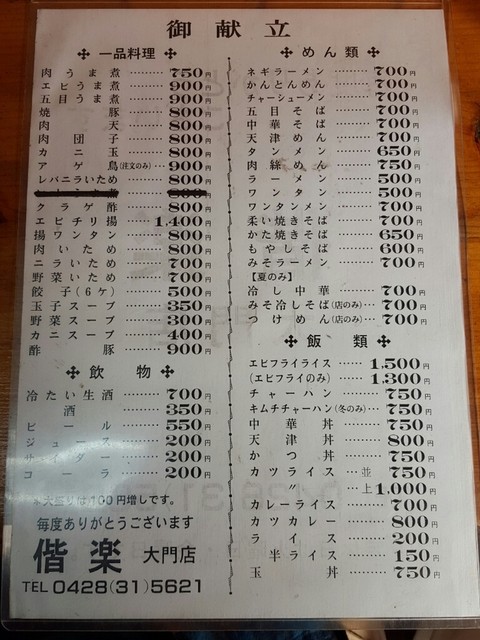 御献立
✤ 一品料理 ✤
肉うま煮 ……… 750円
エビうま煮 ……… 900円
五目うま煮 ……… 900円
焼豚 ……… 800円
肉天 ……… 800円
肉団子 ……… 800円
カニ玉 ……… 800円
アゲ鳥(注文のみ) … 900円
レバニラいため ……… 800円
クラゲ酢 ……… 800円
エビチリ揚 ……… 1,400円
揚ワンタン ……… 800円
肉いため ……… 800円
ニラいため ……… 700円
野菜いため ……… 700円
餃子(6ケ) ……… 500円
玉子スープ ……… 350円
野菜スープ ……… 300円
カニスープ ……… 400円
酢豚 ……… 900円
✤ 飲物 ✤
冷たい生酒 ……… 700円
酒 ……… 350円
ビール ……… 550円
ジュース ……… 200円
サイダー ……… 200円
コーラ ……… 200円
※大盛りは100円増しです。
毎度ありがとうございます
偕楽 大門店
TEL 0428(31)5621
✤ めん類 ✤
ネギラーメン ……… 700円
かんとんめん ……… 700円
チャーシューメン ……… 700円
五目そば ……… 700円
中華そば ……… 700円
天津めん ……… 700円
タンメン ……… 650円
肉絲めん ……… 750円
ラーメン ……… 500円
ワンタン ……… 500円
ワンタンメン ……… 700円
柔い焼きそば ……… 700円
かた焼きそば ……… 650円
もやしそば ……… 600円
みそラーメン ……… 700円
【夏のみ】
冷し中華 ……… 700円
みそ冷しそば(店のみ) … 700円
つけめん(店のみ) … 700円
✤ 飯類 ✤
エビフライライス ……… 1,500円
(エビフライのみ) ……… 1,300円
チャーハン ……… 750円
キムチチャーハン(冬のみ) … 750円
中華丼 ……… 750円
天津丼 ……… 800円
かつ丼 ……… 750円
カツライス … 並 750円
〃 … 上 1,000円
カレーライス ……… 700円
カツカレー ……… 800円
ライス ……… 200円
半ライス ……… 150円
玉丼 ……… 750円